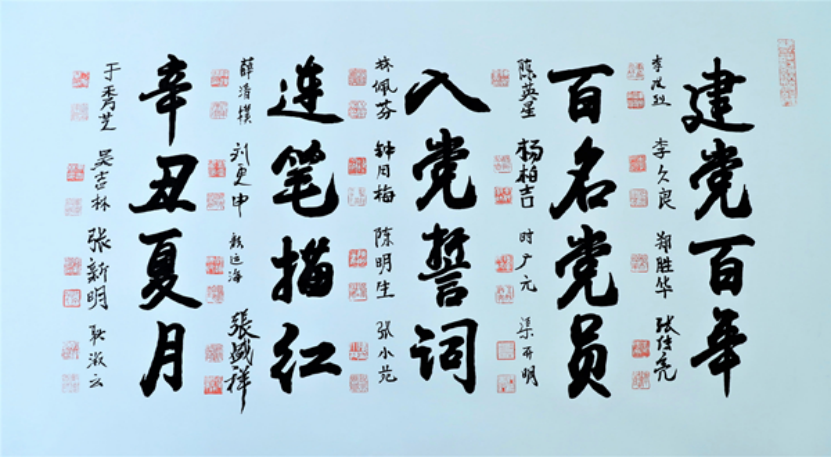 建党百年
李久良 郑胜华
百名党员
陈英星 杨柏吉 时广元
入党誓词
林佩芬 钟月梅 陈明生 张小苑
连笔描红
薛清模 刘更申 张盛祥
辛丑夏月
于秀芝 吴吉林 张新明 耿淑云